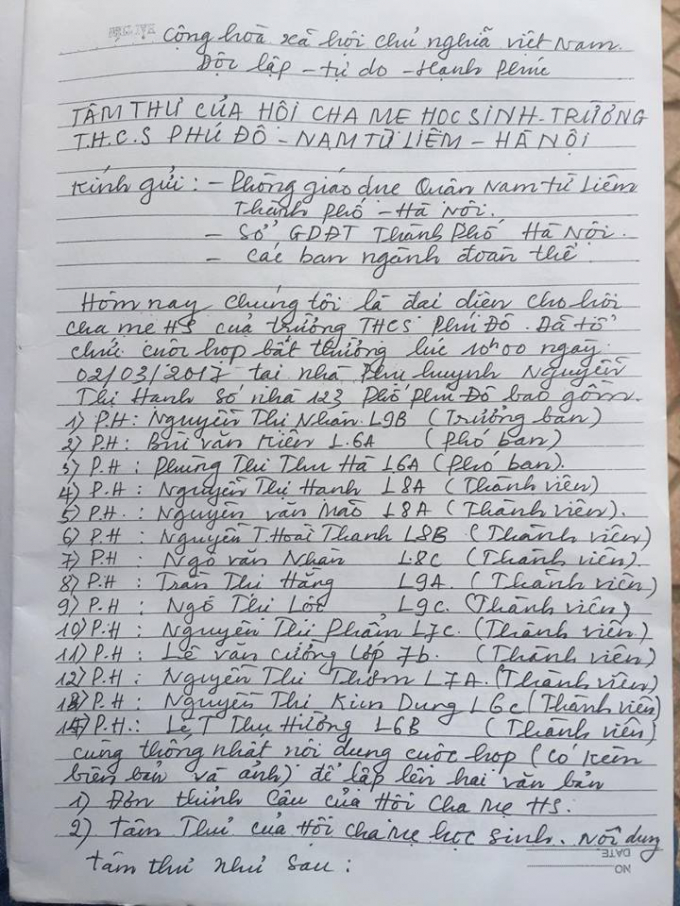 Cộng hòa xã hội chủ nghĩa việt Nam.
Độc lập - tự do - Hạnh phúc
TÂM THƯ CỦA HỘI CHA MẸ HỌC SINH - TRƯỜNG
T.H.C.S PHÚ ĐÔ - NAM TỪ LIÊM - HÀ NỘI
Kính gửi: - Phòng giáo dục Quận Nam từ Liêm
Thành phố - Hà Nội.
- Sở GDĐT Thành Phố Hà Nội.
- Các ban ngành đoàn thể.
Hôm nay chúng tôi là đại diện cho hội
cha mẹ HS của trường THCS Phú Đô. Đã tổ
chức cuộc họp bất thường lúc 10h00 ngày
02/03/2017 tại nhà Phụ huynh Nguyễn
Thị Hạnh Số nhà 123 Phố Phú Đô bao gồm.
1) P.H: Nguyễn Thị Nhân L9B (Trưởng ban)
2) P.H: Bùi văn Kiên L.6A (Phó ban)
3) P.H: Phùng Thị Thu Hà L6A (Phó ban).
4) P.H: Nguyễn Thị Hạnh L8A (Thành viên)
5) P.H: Nguyễn văn Mão L8A (Thành viên).
6) P.H: Nguyễn T.Hoài Thanh L8B (Thành viên)
7) P.H: Ngô văn Nhàn L.8C (Thành viên).
8) P.H: Trần Thị Hằng L9A. (Thành viên)
9) P.H: Ngô Thị Lộc L9C. (Thành viên)
10) P.H: Nguyễn Thị Phẩm L7C. (Thành viên)
11) P.H: Lê văn Cường Lớp 7b. (Thành viên)
12) P.H: Nguyễn Thị Thơm L7A. (Thành viên)
13) P.H: Nguyễn Thị Kim Dung L6C (Thành viên)
14) P.H.: Lê T Thu Hường L6B (Thành viên)
cùng thống nhất nội dung cuộc họp (có kèm
biên bản và ảnh) để lập lên hai văn bản
1) Đơn thỉnh Cầu của Hội Cha Mẹ HS.
2) Tâm Thư của Hội cha mẹ học sinh. Nội dung
tâm thư như sau:
NO
DATE